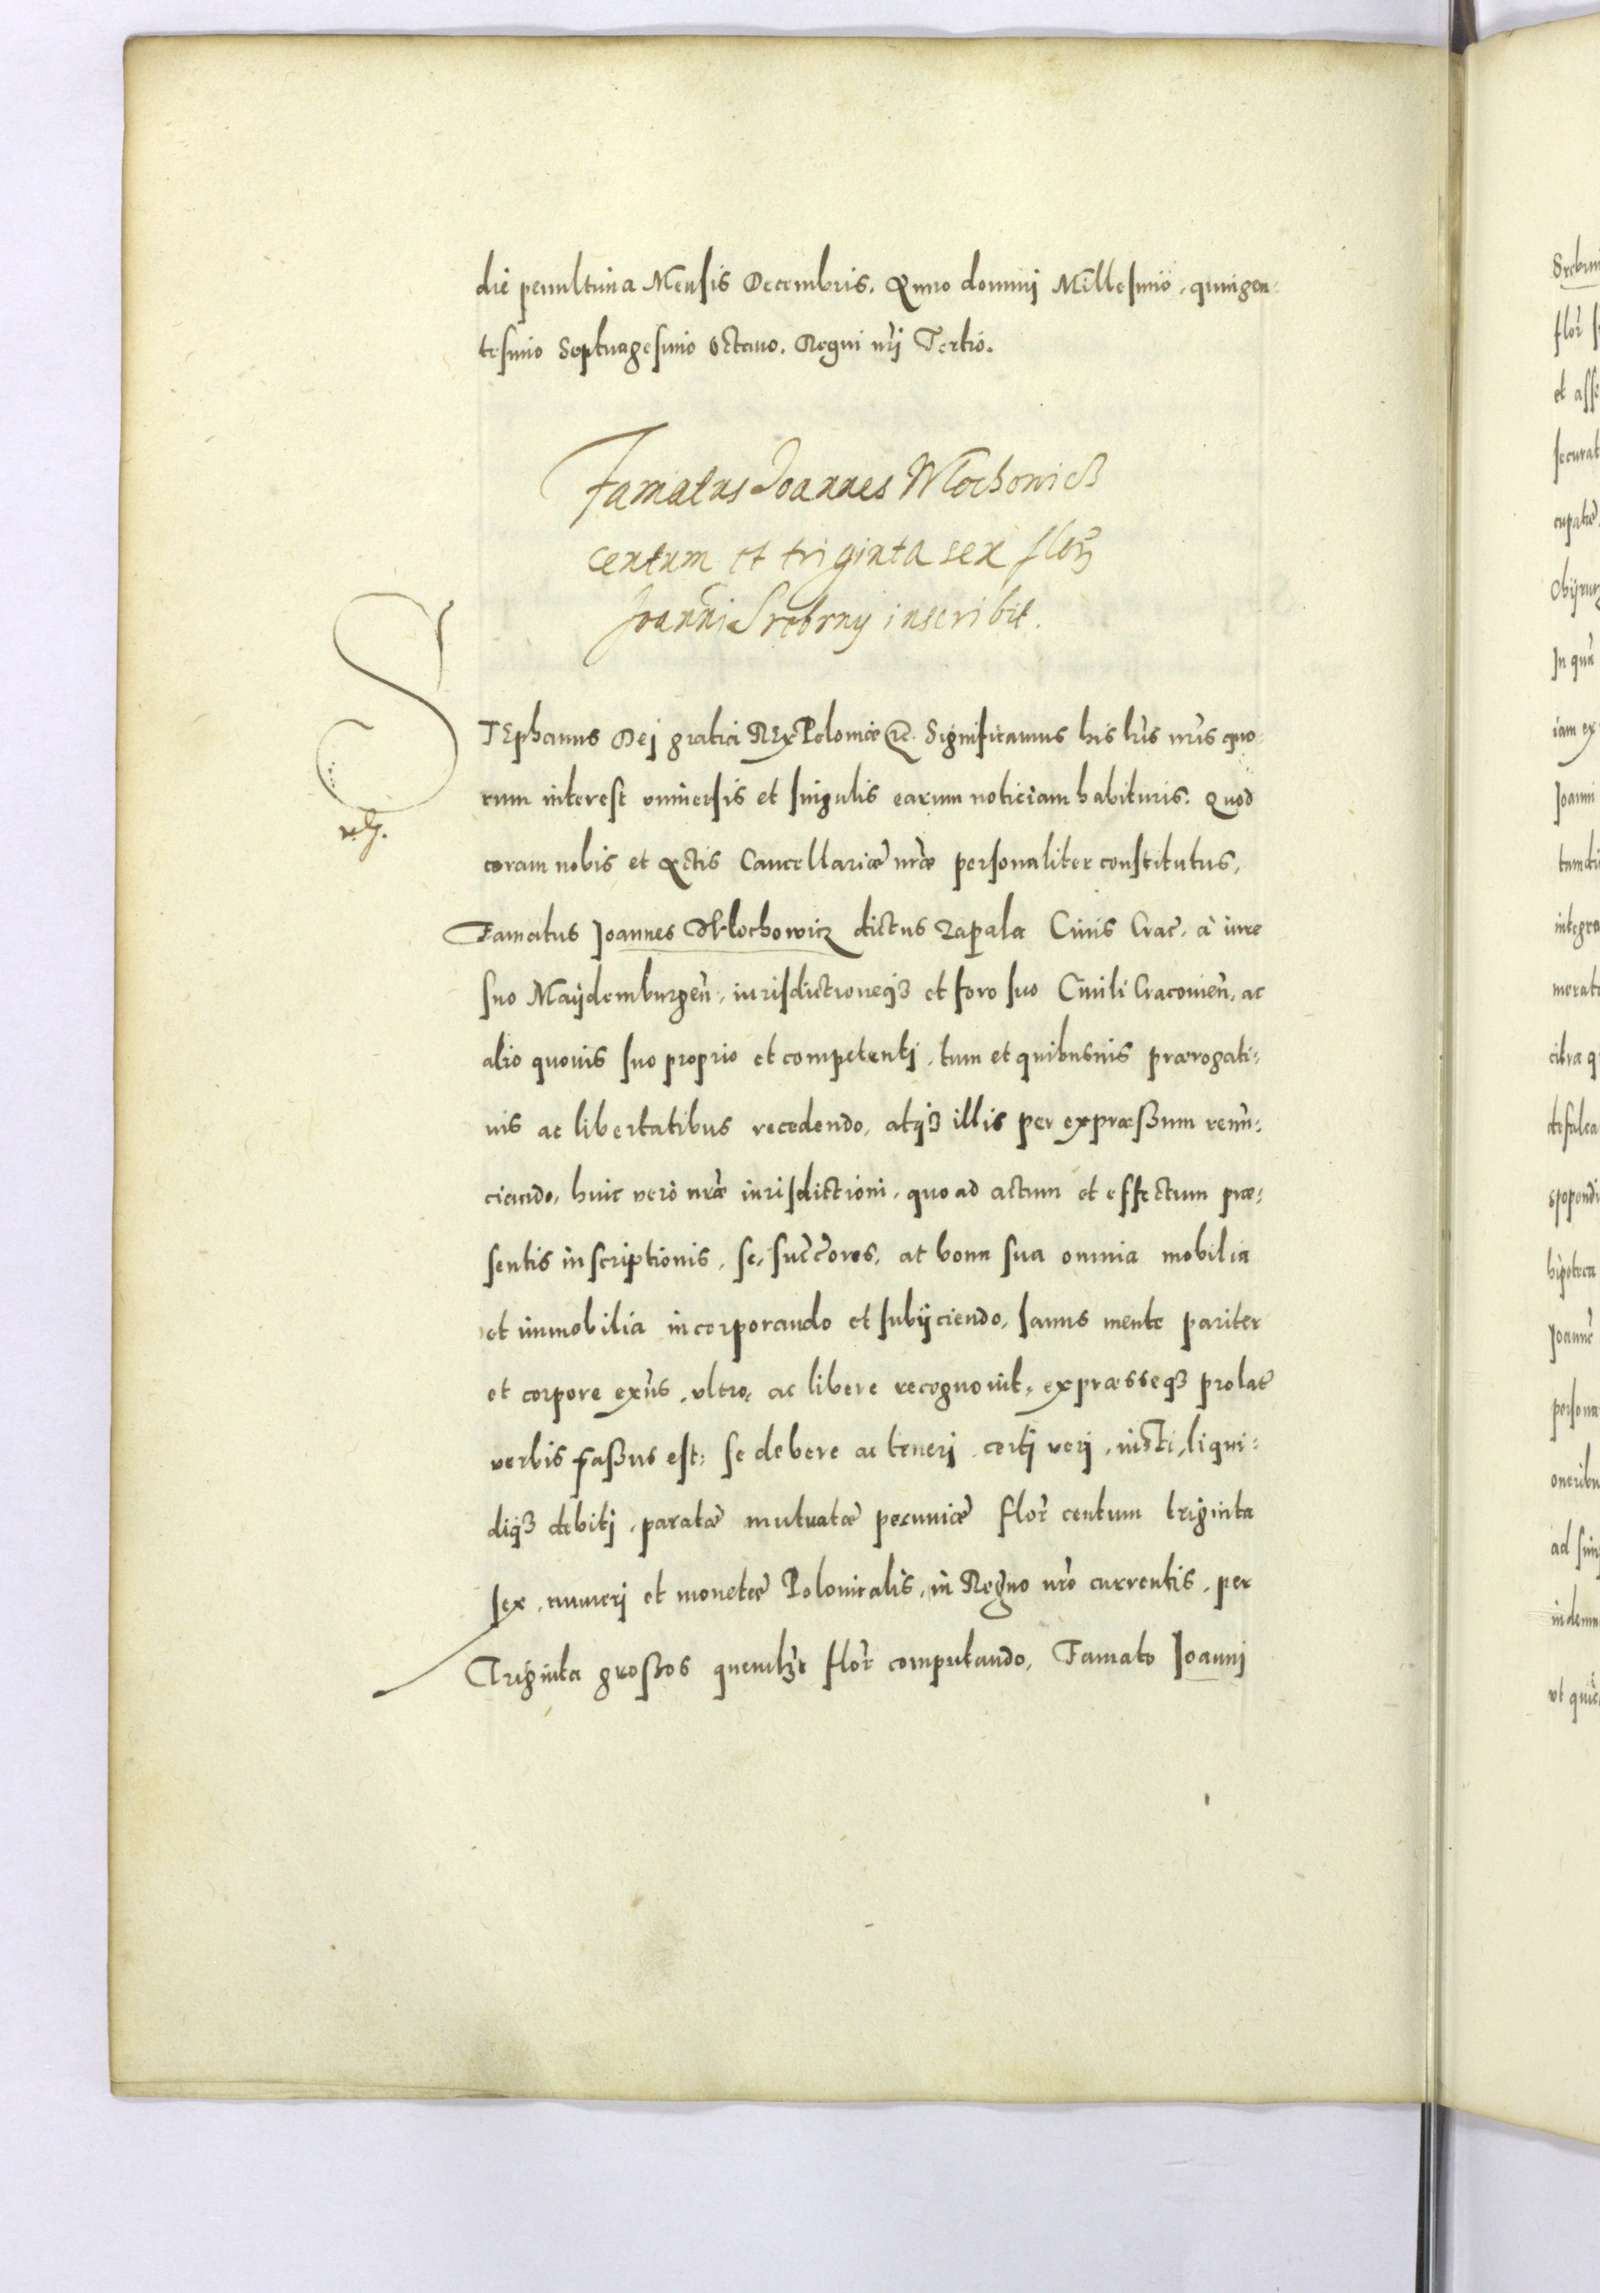 die penultima Mensis Decembris. Anno dominj Millesimo, quingen:
tesimo Septuagesimo Octauo. Regni nrj Tertio.
Famatus Joannes Wlochowicz
centum et triginta sex flor
Joanni Srebrny inscribit.
STEphanus Dej gratia REx Poloniæ etc. Significamus his lris nris quo
rum interest vniuersis et singulis earum noticiam habituris. Quod
coram nobis et Actis Cancellariæ nræ personaliter constitutus,
Famatus Joannes Wlochowicz dictus Zapala Ciuis Crac. à iure
suo Maydemburgen, iurisdictioneq3 et foro suo Ciuili Cracouien, ac
alio quouis suo proprio et competentj, tum et quibusuis prærogati:
uis ac libertatibus recedendo, atq3 illis per expræßum renun:
ciando, huic verò nræ iurisdictioni, quo ad actum et effectum præ:
sentis inscriptionis, se, succores, ac bona sua omnia mobilia
et immobilia incorporando et subijciendo, sanus mente pariter
et corpore exns, vltro, ac libere recognouit, expræsseq3 prolat
verbis faßus est: se debere ac tenerj certj verj, iusti, liqui:
diq3 debitj, paratæ mutuatæ pecuniæ flor centum triginta
sex, numerj et monetæ Polonicalis, in Regno nro currentis, per
Triginta großos quemlzt flor computando, Famato Joannj
Srebrn
flor
et asse
securat
cupatœ
In qua
iam ex
Joanni
tamdi
integra
citra q
defalca
spopondi
hipoteca
Joanne
persona
oneribu
ad sin
indemn